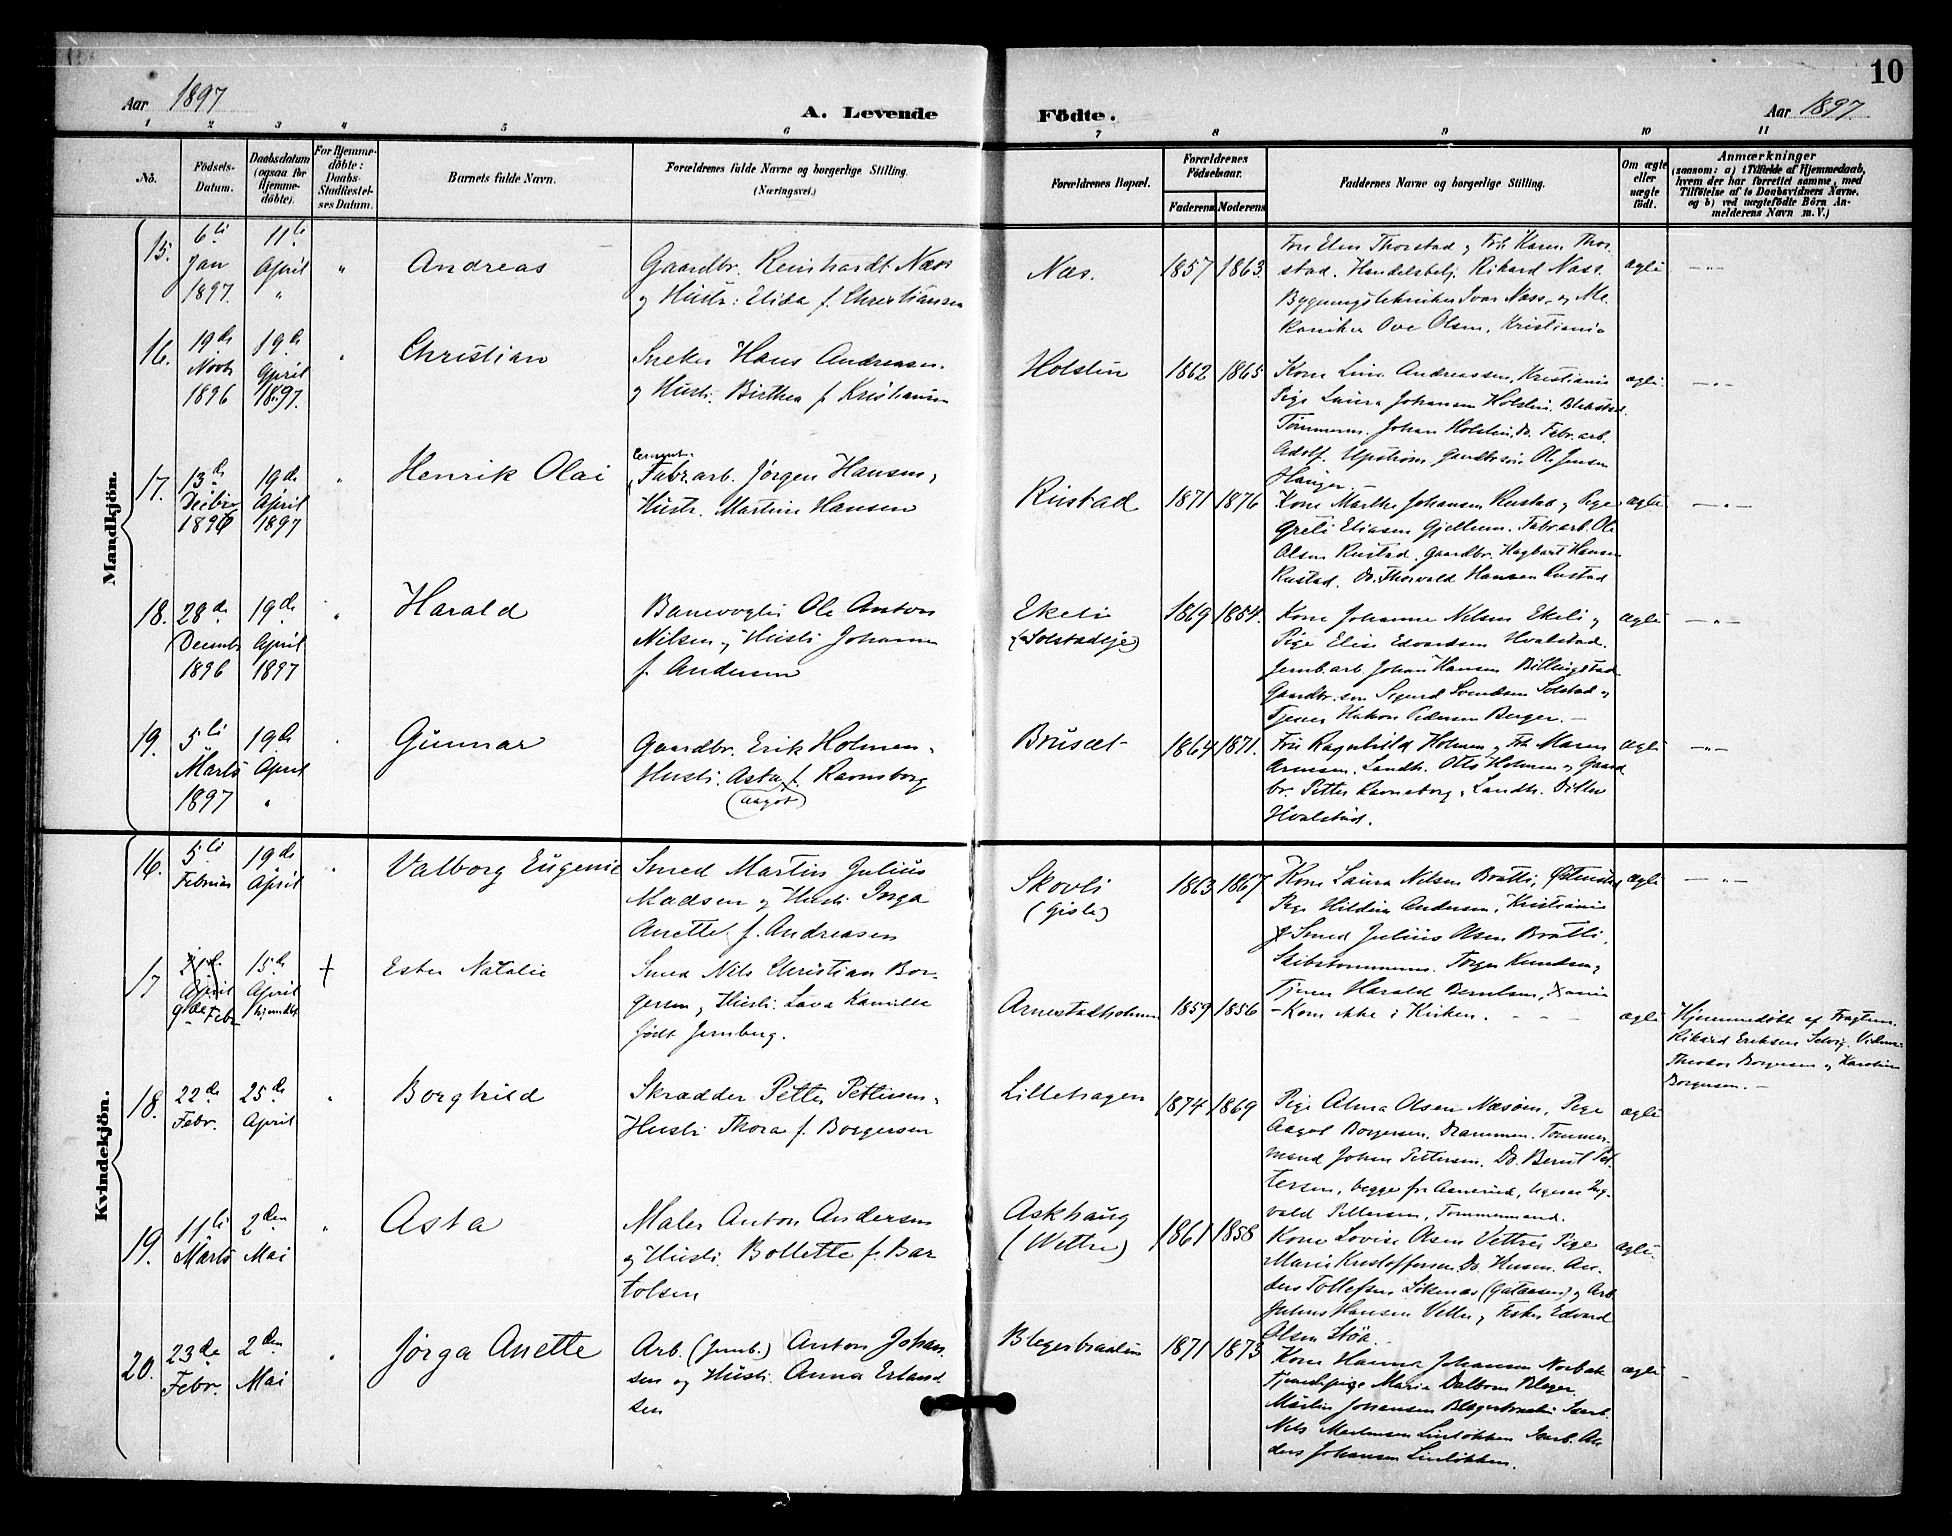 10
Aar 1897
A. Levende Födte.
Aar 1897.
1 2 3 4 5 6 7 8 9 10 11
No.
Födsels-
Datum.
Daabsdatum
(ogsaa for
Hjemme-
döbte).
For Hjemme-
döbte:
Daabs-
Stadfæstel-
ses Datum.
Barnets fulde Navn.
Forældrenes fulde Navne og borgerlige Stilling.
(Næringsvei.)
Forældrenes Bopæl.
Forældrenes
Födselsaar.
Faderens Moderens
Faddernes Navne og borgerlige Stilling.
Om ægte
eller
uægte
födt.
Anmærkninger
(saasom: a) i Tilfælde af Hjemmedaab,
hvem der har forrettet samme, med
Tilföielse af to Daabsvidners Navne.
og b) ved uægtefödte Börn An-
melderens Navn m.V.)
Mandkjön.
15.
6te
Jan
1897.
11te
April
"
"
Andreas
Gaardbr. Reinhardt Næss
og Hustr: Elida f. Christiansen
Næs.
1857
1863.
Fru Elen Thorstad og Frk Karen Thor-
stad. Handelsbetj. Rikard Næss.
Bygningstekniker Ivar Næss, og Me-
kaniker Ove Olsen, Kristiania
ægte
— " —
16.
19de
Novb
1896
19de
April
1897.
"
Christian
Sneker Hans Andreasen.
og Hustr. Birthea f. Kristiansen
Holstin
1862
1865
Kone Lina Andreassen, Kristiania
Pige Laura Johansen Holstin, Blakstad.
Tømmerm. Johan Holstin, Do. Fabr.arb.
Adolf Upstrøm, Gaardbr.søn Ole Jensen
Hanger. —
ægte.
— " —
17.
13de
Decbr
1896
19de
April
1897
"
Henrik Olai
Cement.
Fabr.arb. Jørgen Hansen,
Hustr. Martine Hansen
Rustad
1871
1876
Kone Marthe Johansen Rustad og Pige
Grete Eliasen Gjellum. Fabr.arb. Ole
Olsen Rustad. Gaardbr. Hagbart Hansen
Rustad. Do. Thorvald Hansen Rustad
ægte
— " —
18.
28de
Decemb
1896
19de
April
1897
"
Harald
Banevogter Ole Anton
Nilsen og Hustr. Johanne
f. Andersen
Ekeli
(Solstadeje)
1869
1854.
Kone Johanne Nelsen Ekeli og
Pige Elise Edvardsen Hvalstad.
Jernb.arb. Johan Hansen Billingstad
Gaardbr. søn Sigurd Svendsen Solstad og
Tjener Hakon Pedersen Berger. —
ægte
— " —
19.
5te
Marts
1897
19de
April
"
Gunnar
Gaardbr. Erik Holmen,
Hustr. Asta f. Ravnsborg
(Aagot)
Brusæt
1864
1871.
Fru Ragnhild Holmen og Frk Maren
Arnesen. Landh. Otto Holmen og Gaard
br. Petter Ravnsborg, Landh. Ditlev
Hvalstad.
ægte
— " —
Kvindekjön.
16.
5te
Februar
19de
April
"
Valborg Eugenie
Smed Martin Julius
Madsen og Hustr. Inga
Anette f. Andreasen
Skovli
(Gisle)
1863
1867
Kone Laura Nilsen Bratli, Østensted
Pige Hildina Andersen, Kristiania
Smed Julius Olsen Bratli,
Skibstømmerm. Torger Knudsen og
Tjener Harald Berntsen, Xania
ægte
— " —
17
April
9de Febr
15de
April
hjemdbt
+
Ester Natalie
Smed Nils Christian Bor-
gersen, Hustr. Lava Kamilla
født Jernberg.
Arnestadholmen
1859
1856
— Kom ikke i Kirken. — — —
ægte
Hjemmedøbt af Fragtm.
Rikard Eriksen Selvig. Vidner:
Theodor Borgersen og Karoline
Borgersen. —
18.
22de
Febr.
25de
April
"
Borghild
Skrædder Petter Pettersen,
Hustr. Thora f. Borgersen
Lillehagen
1874
1869
Pige Alma Olsen Næsøen, Pige
Aagot Borgersen, Drammen. Tømmer-
mand Johan Pettersen. Do. Bernt Pet-
tersen, begge fra Aanerud, Ing-
vald Pettersen, Tømmermand.
ægte
19.
11te
Marts
2den
Mai
"
Asta
Maler Anton Andersen
og Hustr. Bollette f. Bar
tolsen
Askhaug
(Wettre)
1861
1858
Kone Lovise Olsen Vettre, Pige
Marie Kristoffersen, Do. Husm. An-
ders Tollefsen Løkenæs og Arb.
Julius Hansen Vettre, Fisker Edvard
Olsen Støa. —
ægte.
20.
23de
Febr.
2den
Mai
"
Jørga Anette
Arb. (Jernb.) Anton Johan-
sen og Hustr. Anna Erland
sen
Blegerbraaten
1871
1873
Kone Hanna Johansen Norbak
Tjenestepige Maria Dalbom Bleger.
Martin Johansen Blegerbraaten Isarb.
Nils Mortensen Linløkken Isarb. An
ders Johansen Linløkken.
ægte